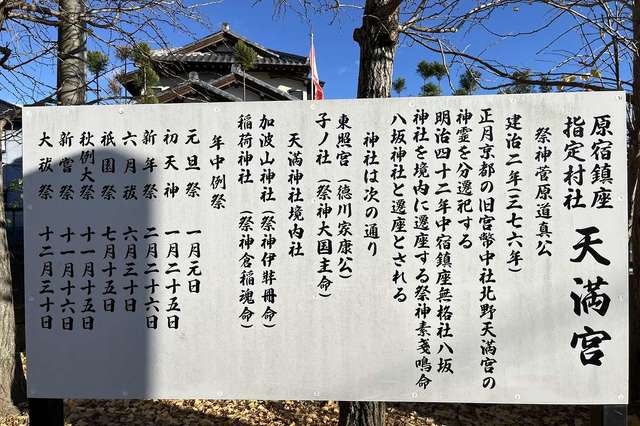 原宿鎮座
指定村社
天満宮
祭神菅原道真公
建治二年(三七六年)
正月京都の旧宮幣中社北野天満宮の
神霊を分遷祀する
明治四十二年中宿鎮座無格社八坂
神社を境内に遷座する祭神素戔鳴命
八坂神社と遷座とされる
神社は次の通り
東照宮(徳川家康公)
子ノ社(祭神大国主命)
天満神社境内社
加波山神社(祭神伊弉冊命)
稲荷神社(祭神倉稲魂命)
年中例祭
元旦祭 一月元日
初天神 一月二十五日
新年祭 二月二十六日
六月祓 六月三十日
祇園祭 七月十五日
秋例大祭 十一月十五日
新嘗祭 十一月十六日
大祓祭 十二月三十日